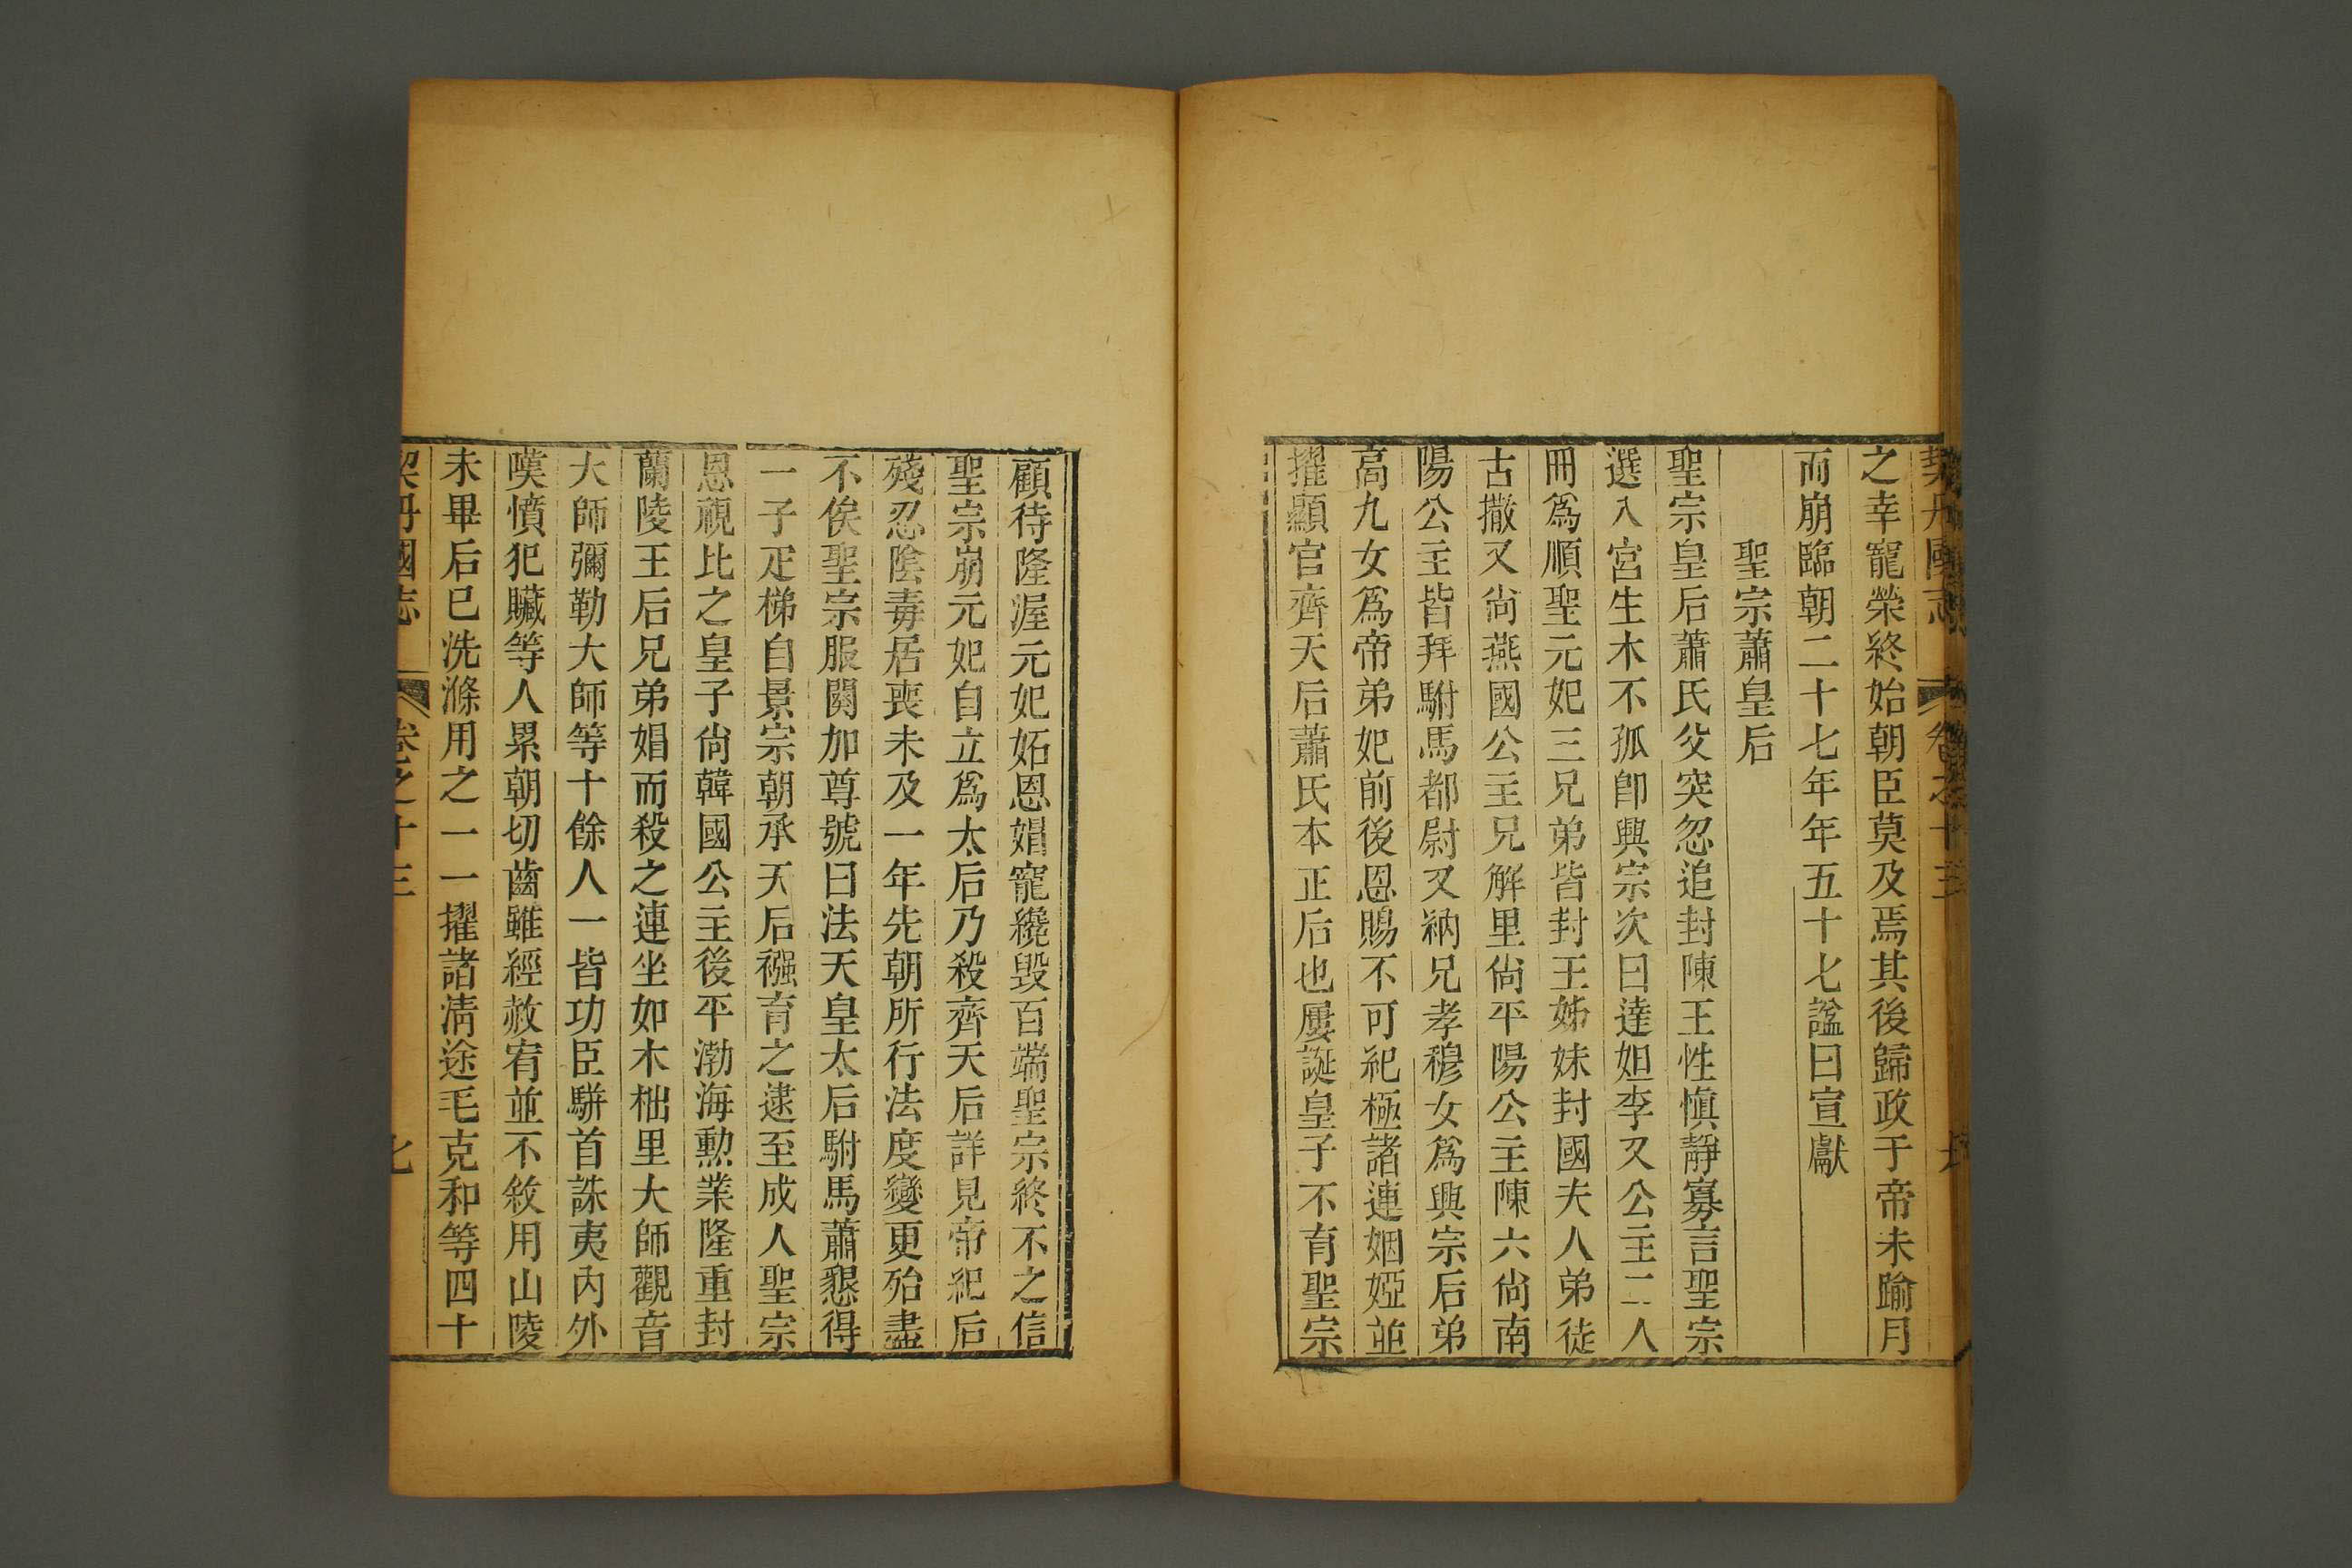 契丹國志 卷之十三
之幸寵榮終始朝臣莫及焉其後歸政于帝未踰月
而崩臨朝二十七年年五十七諡曰宣獻
聖宗蕭皇后
聖宗皇后蕭氏父突忽追封陳王性愼靜寡言聖宗
選入宮生木不孤卽興宗次曰達妲李又公主二人
冊爲順聖元妃三兄弟皆封王姊妹封國夫人弟徒
古撒又尙燕國公主兄解里尙平陽公主陳六尙南
陽公主皆拜駙馬都尉又納兄孝穆女爲興宗后弟
高九女爲帝弟妃前後恩賜不可紀極諸連姻婭並
擢顯官齊天后蕭氏本正后也屢誕皇子不育聖宗
顧待隆渥元妃妬恩娼寵繞毁百端聖宗終不之信
聖宗崩元妃自立爲太后乃殺齊天后詳見帝紀后
殘忍陰毒居喪未及一年先朝所行法度變更殆盡
不俟聖宗服闋加尊號曰法天皇太后駙馬蕭懇得
一子疋梯自景宗朝承天后襁育之逮至成人聖宗
恩視比之皇子尙韓國公主後平渤海勲業隆重封
蘭陵王后兄弟娼而殺之連坐如木柮里大師觀音
大師彌勒大師等十餘人一皆功臣駢首誅夷內外
嘆憤犯贓等人累朝切齒雖經赦宥並不敘用山陵
未畢后已洗滌用之一一擢諸淸途毛克和等四十
契丹國志 卷之十三 七